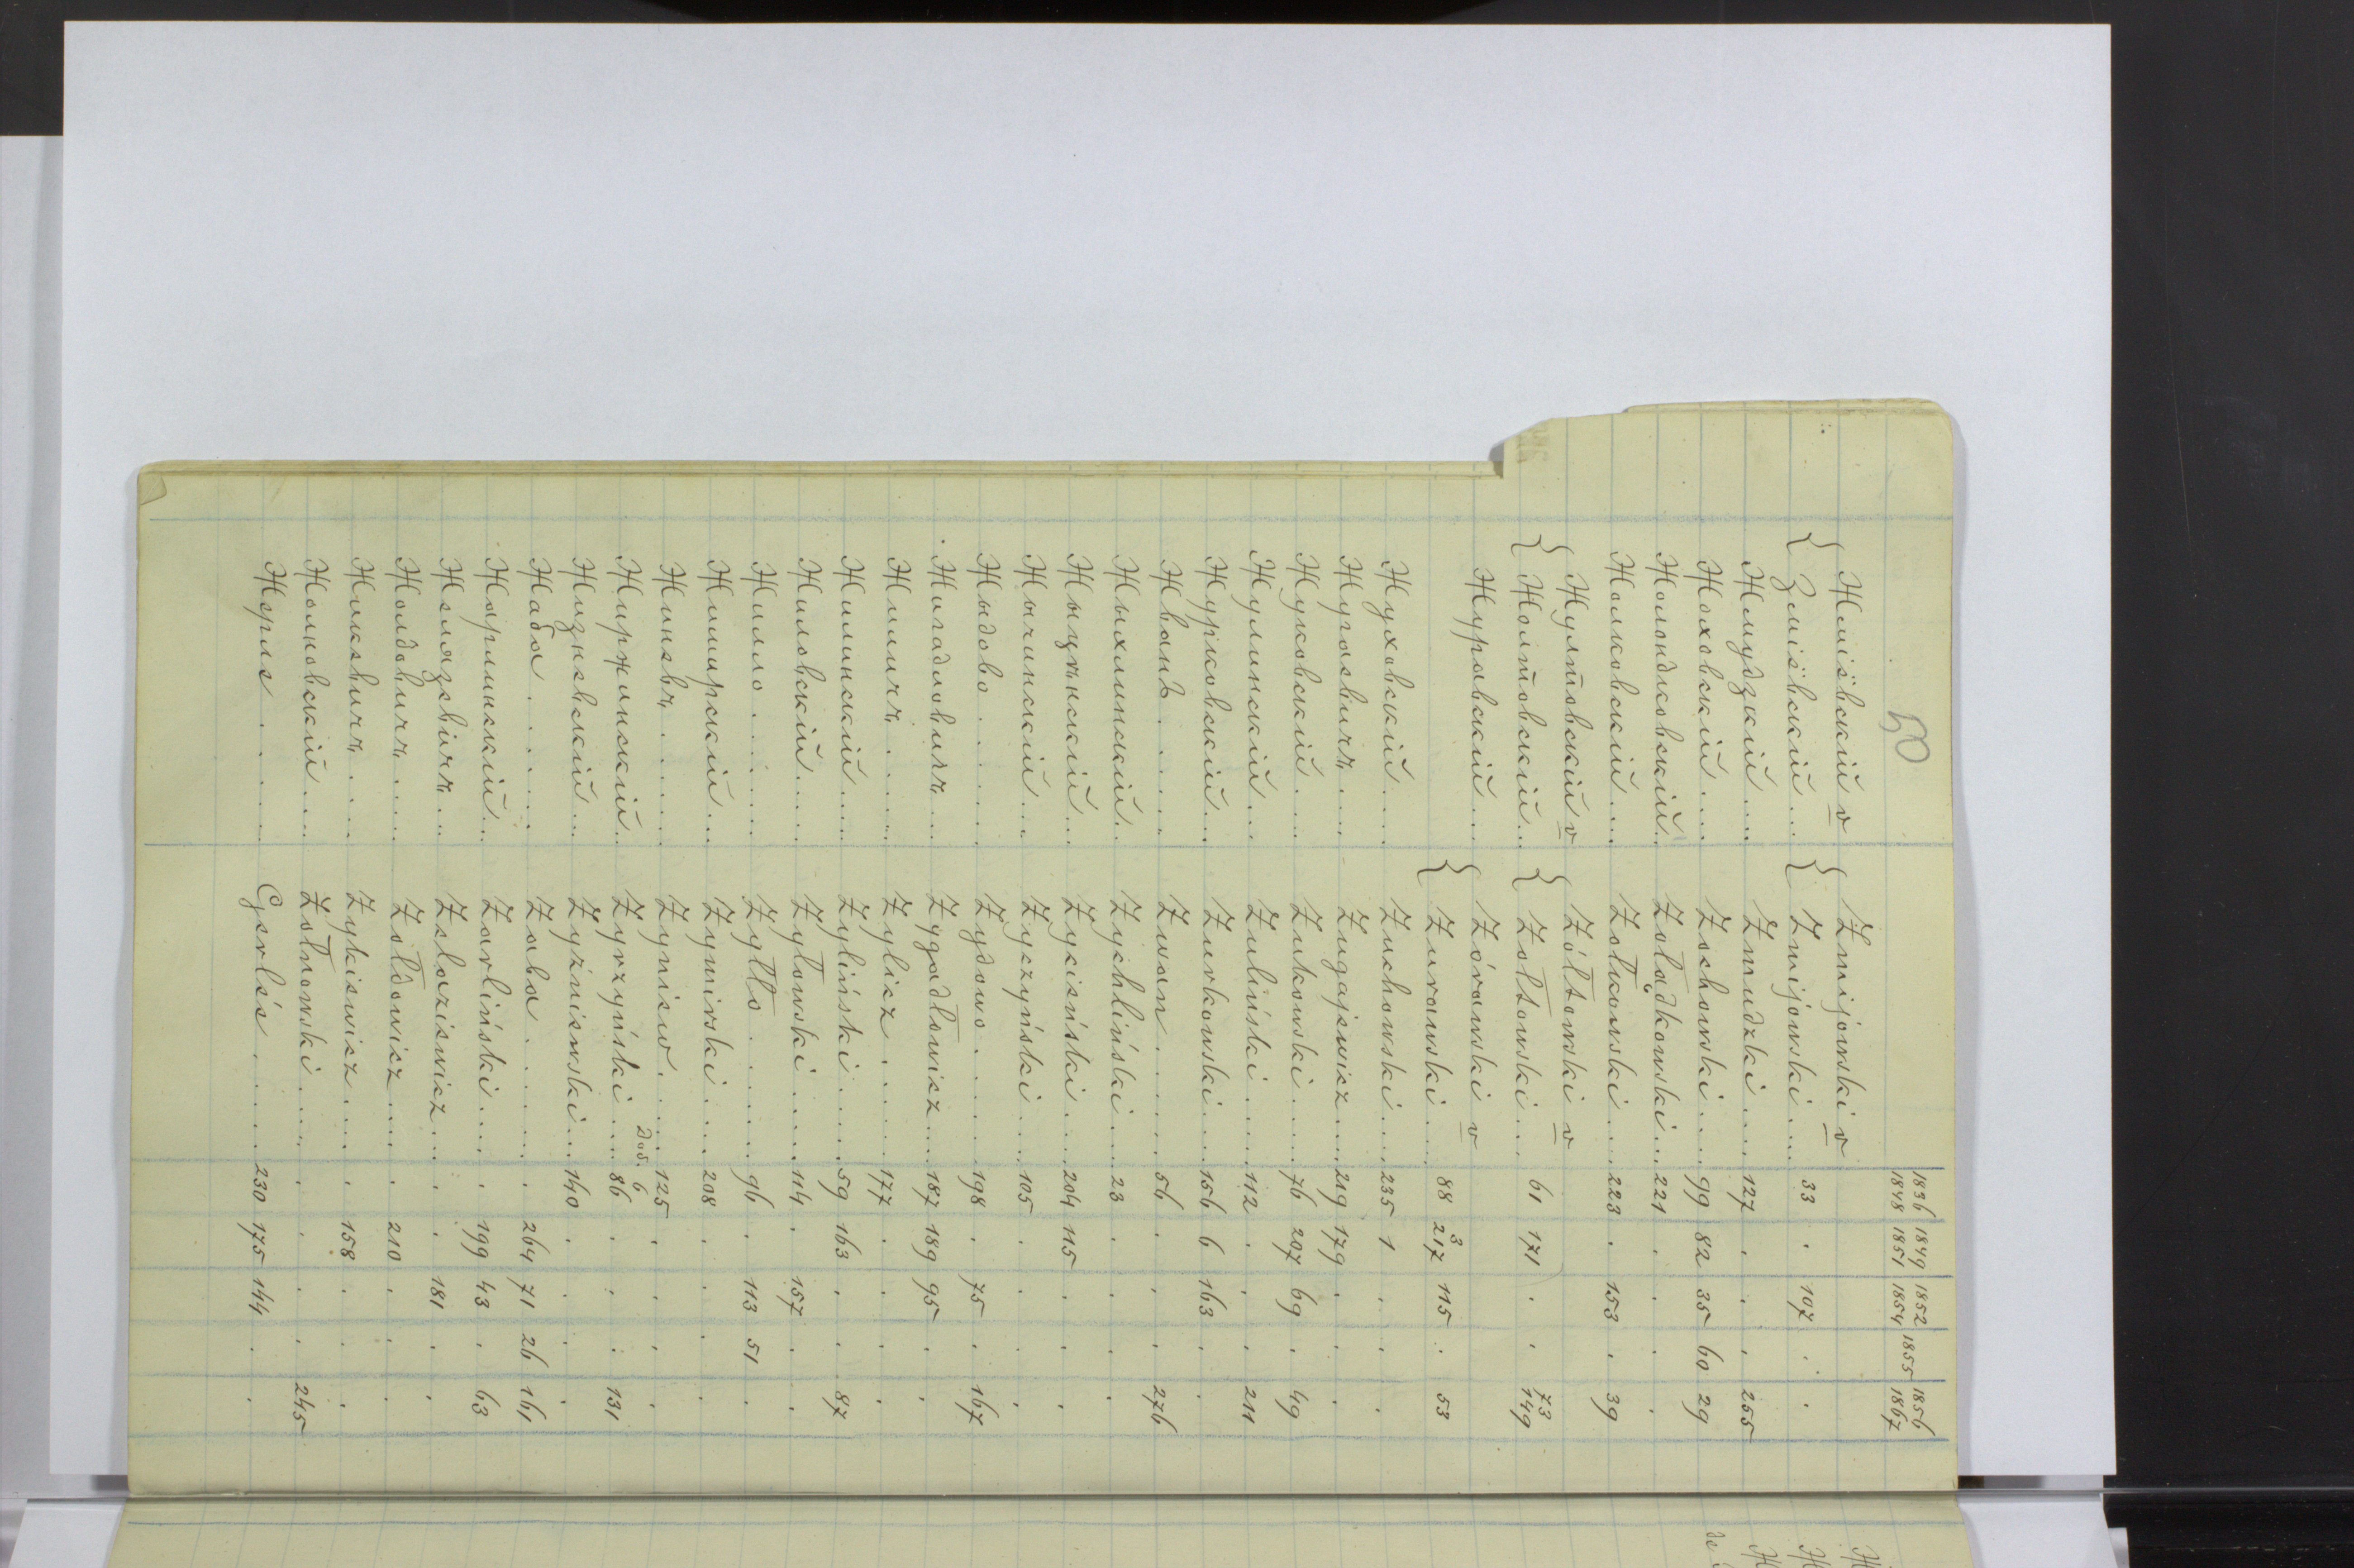 50
1836 1849 1852 1855 1856
1848 1851 1854 1867
Жміёвскій v { Żmijowski v
{ Зміёвскій .... { Żmijowski .... 33 . 107 . .
Жмудзкій .... Żmudzki .... 127 . . . 255
Жоховскій .... Żochowski .... 99 82 35 60 29
Жолондковскій .. Żołądkowski ... 221 . . . .
Жолковскій .... Żołkowski .... 223 . 153 . 39
{ Жултовскій v { Żółtowski v
Жолтовскій ... Żołtowski ... 61 171 . . 73 149
Журавскій .... { Żórawski v
Żurawski .... 88 3 217 115 . 53
Жуховскій .... Żuchowski .... 235 1 . . .
Жугаевичъ .... Żugajewicz .... 219 179 . . .
Жуковскій .... Żukowski .... 76 207 69 . 49
Жулинскій .... Żuliński .... 112 . . . 211
Журковскій ... Żurkowski ... 156 6 163 . .
Жванъ ..... Żwan ..... 56 . . . 276
Жыхлинскій .. Żychliński ... 23 . . . .
Жыцѣнскій ... Życieński ... 204 115 . . .
Жычинскій ... Życzyński ... 105 . . . .
Жыдово ..... Żydowo ..... 198 . 75 . 167
Жигадловичъ ... Żygadłowicz .... 187 189 95 . .
Жиличъ ..... Żylicz ..... 177 . . . .
Жилинскій .... Żyliński .... 59 163 . . 87
Жиловскій .... Żyłowski .... 114 . 157 . .
Жилло ..... Żyłło ..... 96 . 113 51 .
Жимирскій ... Żymirski .... 208 . . . .
Жиневъ ..... Żyniew ..... 125 . . . .
Жиржинскій .. Żyrzyński ... Dod. 6 86 . . . 131
Жизневскій ... Żyżniewski ... 140 . . . .
Жаба ..... Żaba ..... . 264 71 26 161
Жарлинскій ... Żarliński .... . 199 43 . 63
Желязевичъ ... Żelaziewicz ... . . 181 . .
Жолдовичъ .... Żołdowicz .... . 210 . . .
Жикевичъ .... Żykiewicz .... . 158 . . .
Жолновскій .... Żołnowski .... . . . . 245
Жерле ..... Gzerlés ..... 230 175 144 . .